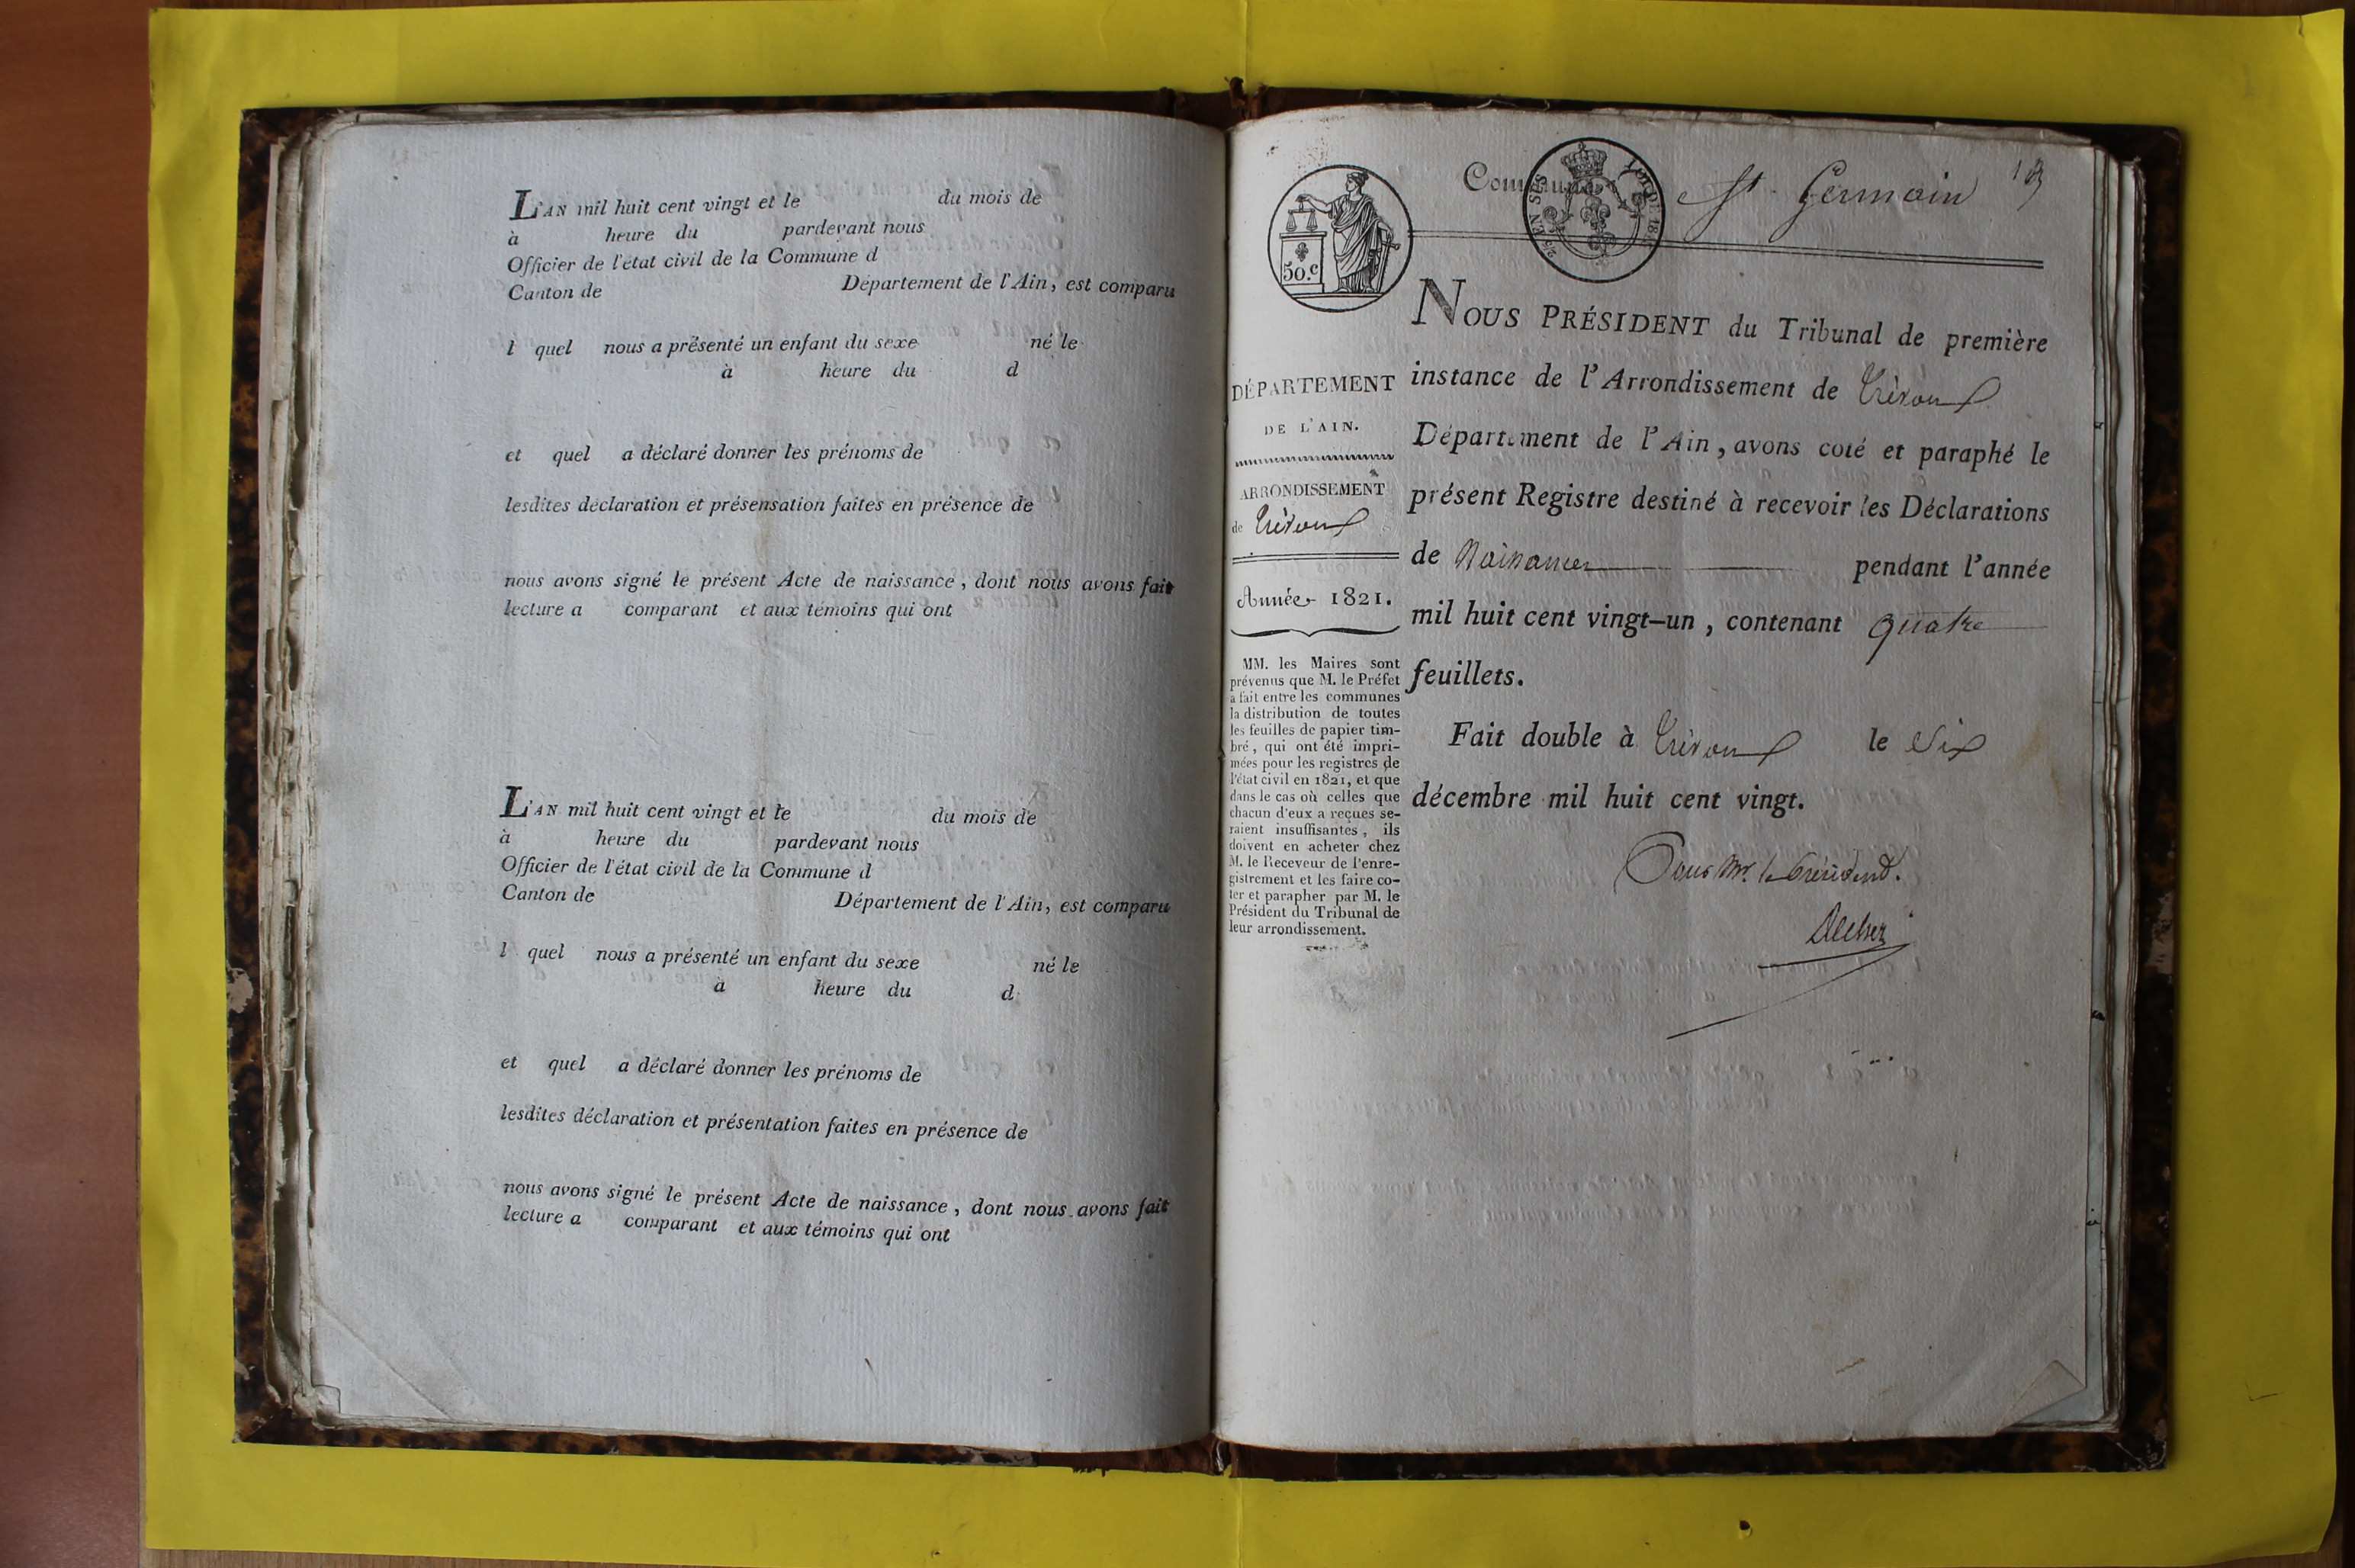 L'AN mil huit cent vingt et le du mois de
à heure du pardevant nous
Officier de l'état civil de la Commune d
Canton de Département de l'Ain, est comparu
l quel nous a présenté un enfant du sexe né le
à heure du d
et quel a déclaré donner les prénoms de
lesdites déclaration et présensation faites en présence de
nous avons signé le présent Acte de naissance, dont nous avons fait
lecture a comparant et aux témoins qui ont
L'AN mil huit cent vingt et le du mois de
à heure du pardevant nous
Officier de l'état civil de la Commune d
Canton de Département de l'Ain, est comparu
l quel nous a présenté un enfant du sexe né le
à heure du d
et quel a déclaré donner les prénoms de
lesdites déclaration et présentation faites en présence de
nous avons signé le présent Acte de naissance, dont nous avons fait
lecture a comparant et aux témoins qui ont
Commune St Germain
50.c
DÉPARTEMENT
DE L'AIN.
ARRONDISSEMENT
de Trévoux
Année 1821.
MM. les Maires sont
prévenus que M. le Préfet
a fait entre les communes
la distribution de toutes
les feuilles de papier tim-
bré, qui ont été impri-
mées pour les registres de
l'état civil en 1821, et que
dans le cas où celles que
chacun d'eux a reçues se-
raient insuffisantes, ils
doivent en acheter chez
M. le Receveur de l'enre-
gistrement et les faire co-
ter et parapher par M. le
Président du Tribunal de
leur arrondissement.
NOUS PRÉSIDENT du Tribunal de première
instance de l'Arrondissement de Trévoux
Département de l'Ain, avons coté et paraphé le
présent Registre destiné à recevoir les Déclarations
de Naissances pendant l'année
mil huit cent vingt-un, contenant quatre
feuillets.
Fait double à Trévoux le Six
décembre mil huit cent vingt.
Pour Mr. le Président.